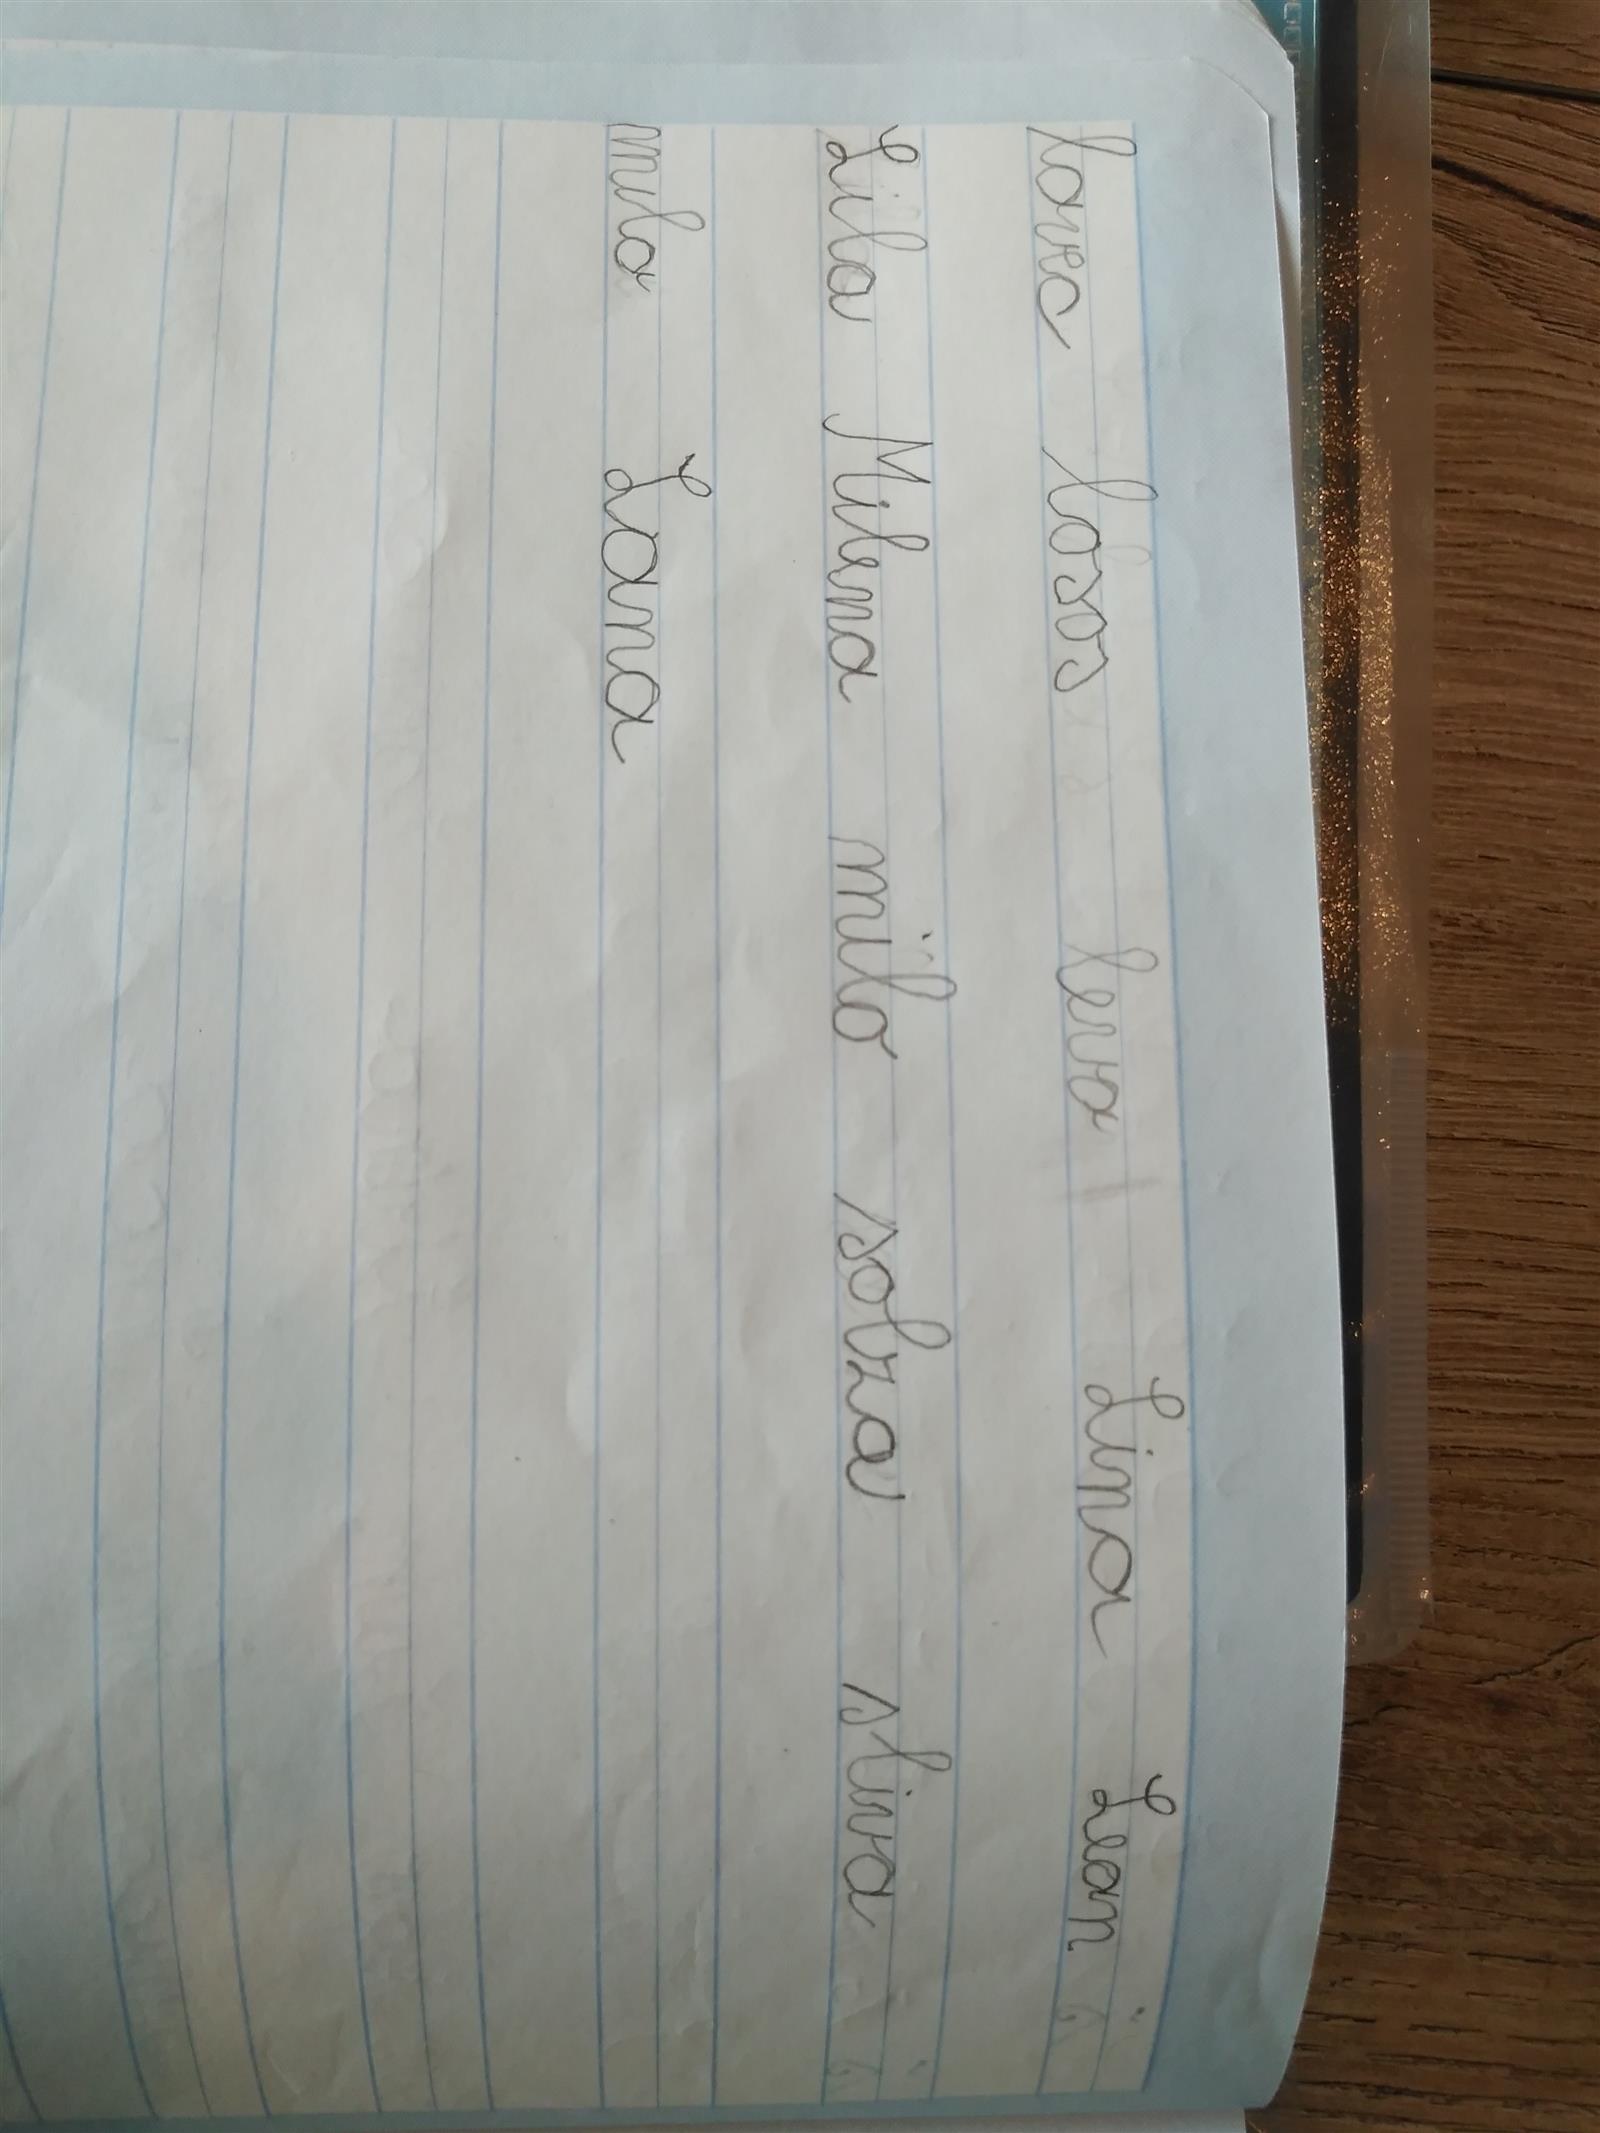 lovec losos leva Lina Lean
Lila Milena milo solza sliva
mila Lana